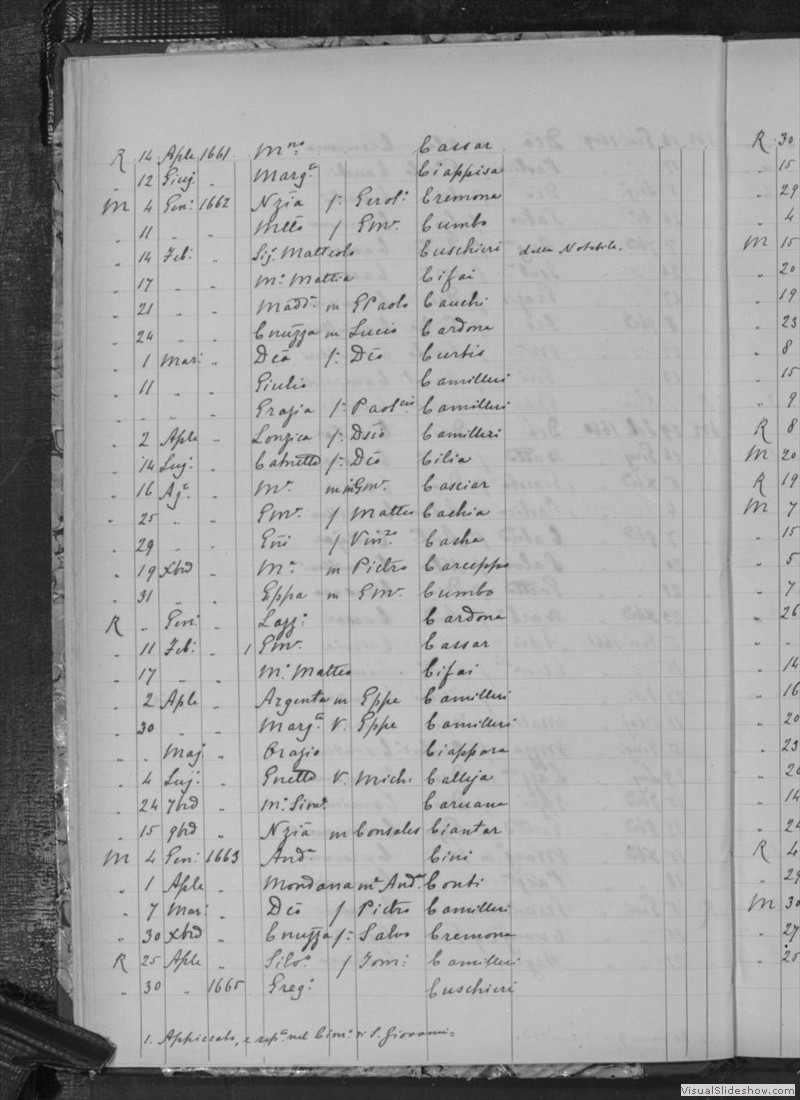 R 14 Aple 1661 Mno Cassar
" 12 Giuj. " Marga Ciappisa
M 4 Gen: 1662 Nzia f: Gerol: Cremona
" 11 " " Metto f Gma. Cumbo
" 14 Feb: " Sij. Matteolo Cuschieri della Notabile.
" 17 " " Ma. Mattia Cifai
" 21 " " Madda. m GPaolo Cauchi
" 24 " " Cnuzza m Lucio Cardona
" 1 Mar: " Dca f: Dco Curtis
" 11 " Giulio Camilleri
" " " Grazia f: Paol Camilleri
" 2 Aple " Lonzica f: Dsio Camilleri
" 14 Luj: " Catnetta f: Dco Cilia
" 16 Ag. " Ma. m Gma. Casciar
" 25 " " Gma. f Matteo Cachia
" 29 " " Gni f Vin Casha
" 19 Xbre " Ma. m Pietro Carceppo
" 31 " Eppa m Gma. Cumbo
R " Gen: Lazz: Cardona
" 11 Feb: " 1 Gma. Cassar
" 17 " Ma. Matteo Cifai
" 2 Aple " Argenta m Eppe Camilleri
" 30 " Marga V. Eppe Camilleri
" " Maj. " Orazio Ciappara
" 4 Luj: " Gnetta V. Mich: Calleja
" 24 7bre " Ma. Sima. Caruana
" 15 9bre " Nzia m Consales Ciantar
M 4 Gen: 1663 Anda. Cini
" 1 Aple " Mondana m. Anda. Conti
" 7 Mar: " Dco f Pietro Camilleri
" 30 Xbre " Cnuzza f: Salvo Cremona
R 25 Aple " Silo. f Tom: Camilleri
" 30 " 1665 Greg: Cuschieri
1. Appiccato, e sepo. nel Cimo. di S. Giovanni=
R 30
" 15
" 29
" 4
M 15
" 20
" 19
" 23
" 8
" 15
" 9
R 8
M 20
R 19
M 7
" 15
" 5
" 7
" 26
" "
" 14
" 16
" 20
" 23
" 20
" 14
" 24
R 4
" 29
M 30
" 27
" 25
VisualSlideshow.com